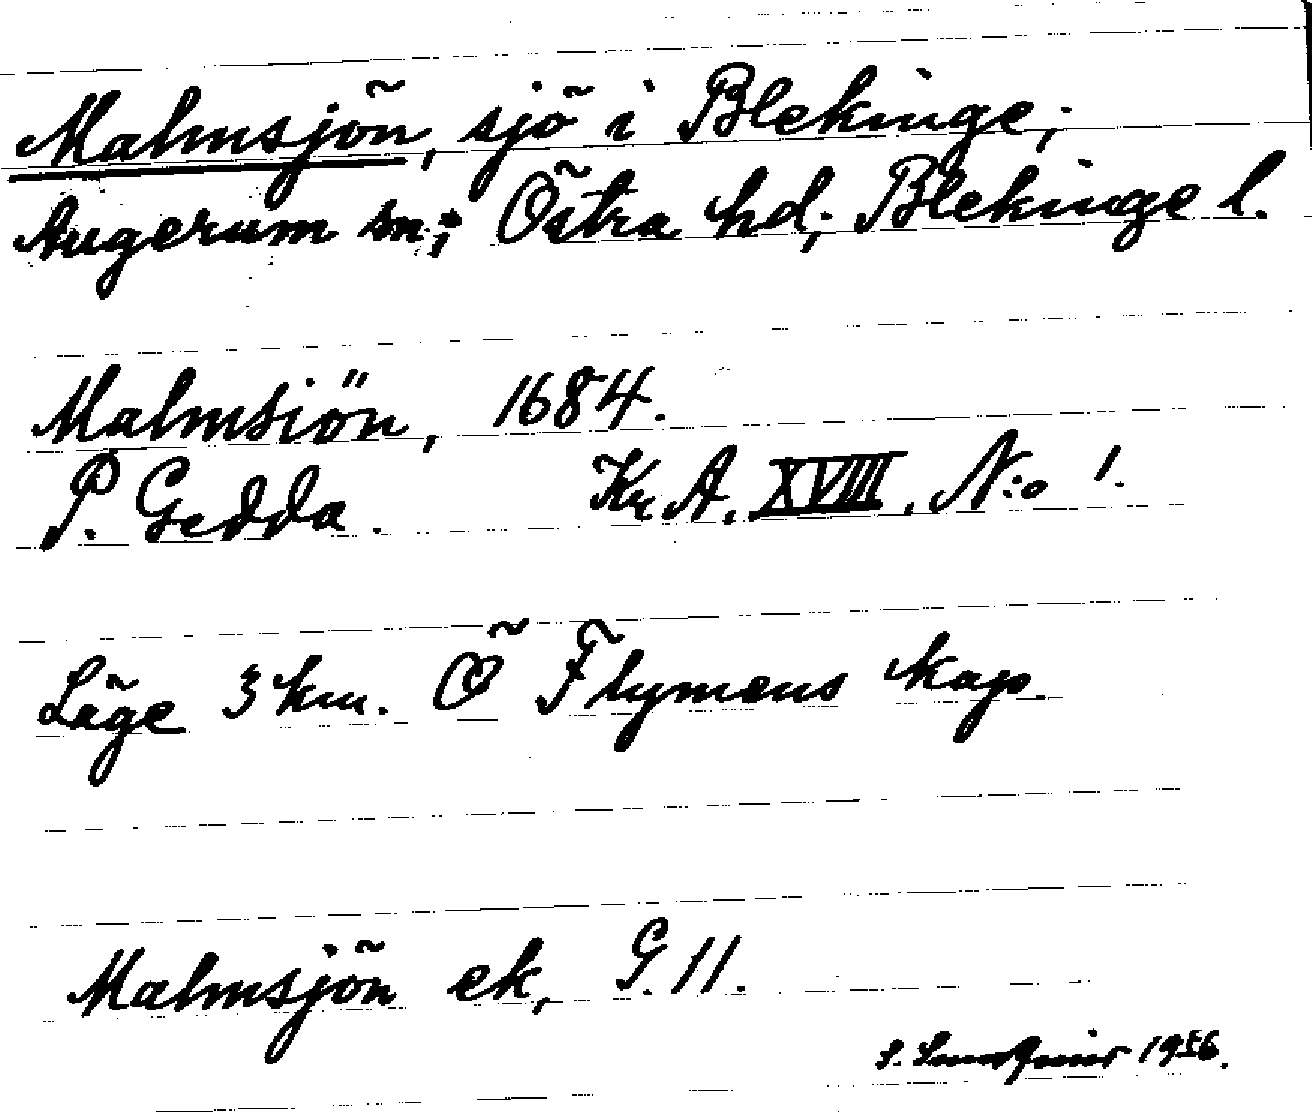 Malmsjön, sjö i Blekinge;
Augerum sn; Östra hd; Blekinge l.
Malmsiön, 1684.
P. Gedda. Kr. A. XVIII. N:o 1.
Läge 3 km. Ö Flymens kap.
Malmsjön ek, G. 11.
S. 1956.